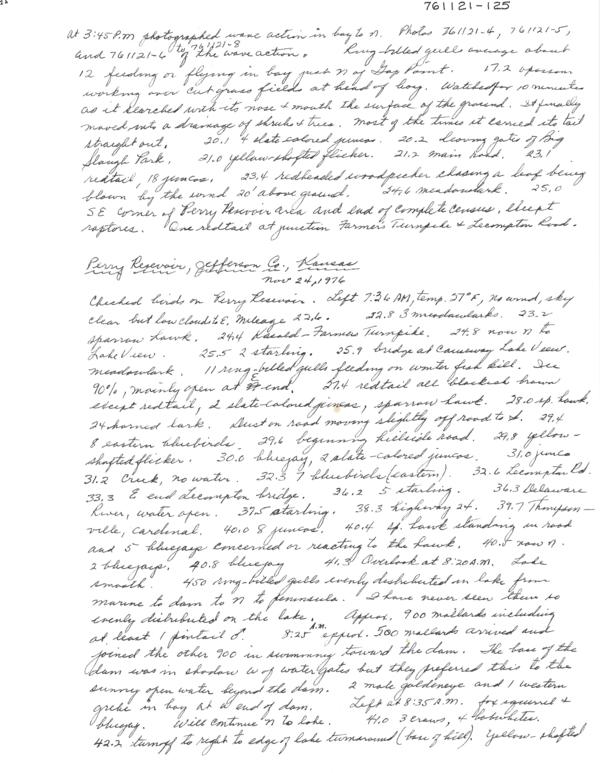 761121-125
At 3:45 P.M. photographed wave action in bay to N. Photos 761121-4, 761121-5,
and 761121-6 to 761121-8 of the wave action. Ring-billed gull average about
12 feeding or flying in bay just N of Gap Point. 17.2 opossum
working over cut grass fields at head of bay. Watched for 10 minutes
as it searched with its nose & mouth the surface of the ground. It finally
moved into a drainage of shrubs & trees. Most of the times it carried its tail
straight out. 20.1 4 slate-colored juncos. 20.2 leaving gates of Big
Slough Park. 21.0 yellow-shafted flicker. 21.2 main road. 23.1
redtail, 18 juncos. 23.4 redheaded woodpecker chasing a leaf being
blown by the wind 20' above ground. 24.6 meadowlark. 25.0
SE corner of Perry Resevoir area and end of complete census, except
raptores. One redtail at junction Farmers Turnpike & Lecompton Road.
Perry Resevoir, Jefferson Co., Kansas
Nov 24, 1976
Checked birds on Perry Resevoir. Left 7:36 AM, temp. 27°F, no wind, sky
clear but low clouds to E, Mileage 22.6. 22.8 3 meadowlarks. 23.2
sparrow hawk. 24.4 Kasold-Farmers Turnpike. 24.8 now N to
Lake View. 25.5 2 starling. 25.9 bridge at Causeway Lake View.
meadowlark. 11 ring-billed gulls feeding on winter fish kill. Ice
90%, mainly open at E end. 27.4 redtail all blackish brown
except redtail, 2 slate-colored juncos, sparrow hawk. 28.0 sp. hawk.
24 horned lark. Dust on road moving slightly off road to S. 29.4
8 eastern bluebirds. 29.6 beginning hillside road. 29.8 yellow-
shafted flicker. 30.0 bluejay, 2 slate-colored juncos. 31.0 junco
31.2 Creek, no water. 32.3 7 bluebirds (eastern). 32.6 Lecompton Rd.
33.3 E end Lecompton bridge. 36.2 5 starling. 36.3 Delaware
River, water open. 37.5 starling. 38.3 highway 24. 39.7 Thompson-
ville, cardinal. 40.0 8 juncos. 40.4 sp. hawk standing in road
and 5 bluejays concerned or reacting to the hawk. 40.5 now N.
2 bluejays. 40.8 bluejay 41.3 Overlook at 8:20 A.M. Lake
smooth. 450 ring-billed gulls evenly distributed in lake from
marine to dam to N to peninsula. I have never seen them so
evenly distributed on the lake. Approx. 900 mallards including
at least 1 pintail ♂. 8:25 A.M. approx. 500 mallards arrived and
joined the other 900 in swimming toward the dam. The base of the
dam was in shadow W of water gates but they preferred this to the
sunny open water beyond the dam. 2 male goldeneye and 1 western
grebe in bay at W end of dam. Left at 8:35 A.M. fox squirrel &
bluejay. Will continue N to lake. 41.0 3 crows, 4 bobwhites.
42.2 turnoff to right to edge of lake turnaround (base of hill). Yellow-shafted